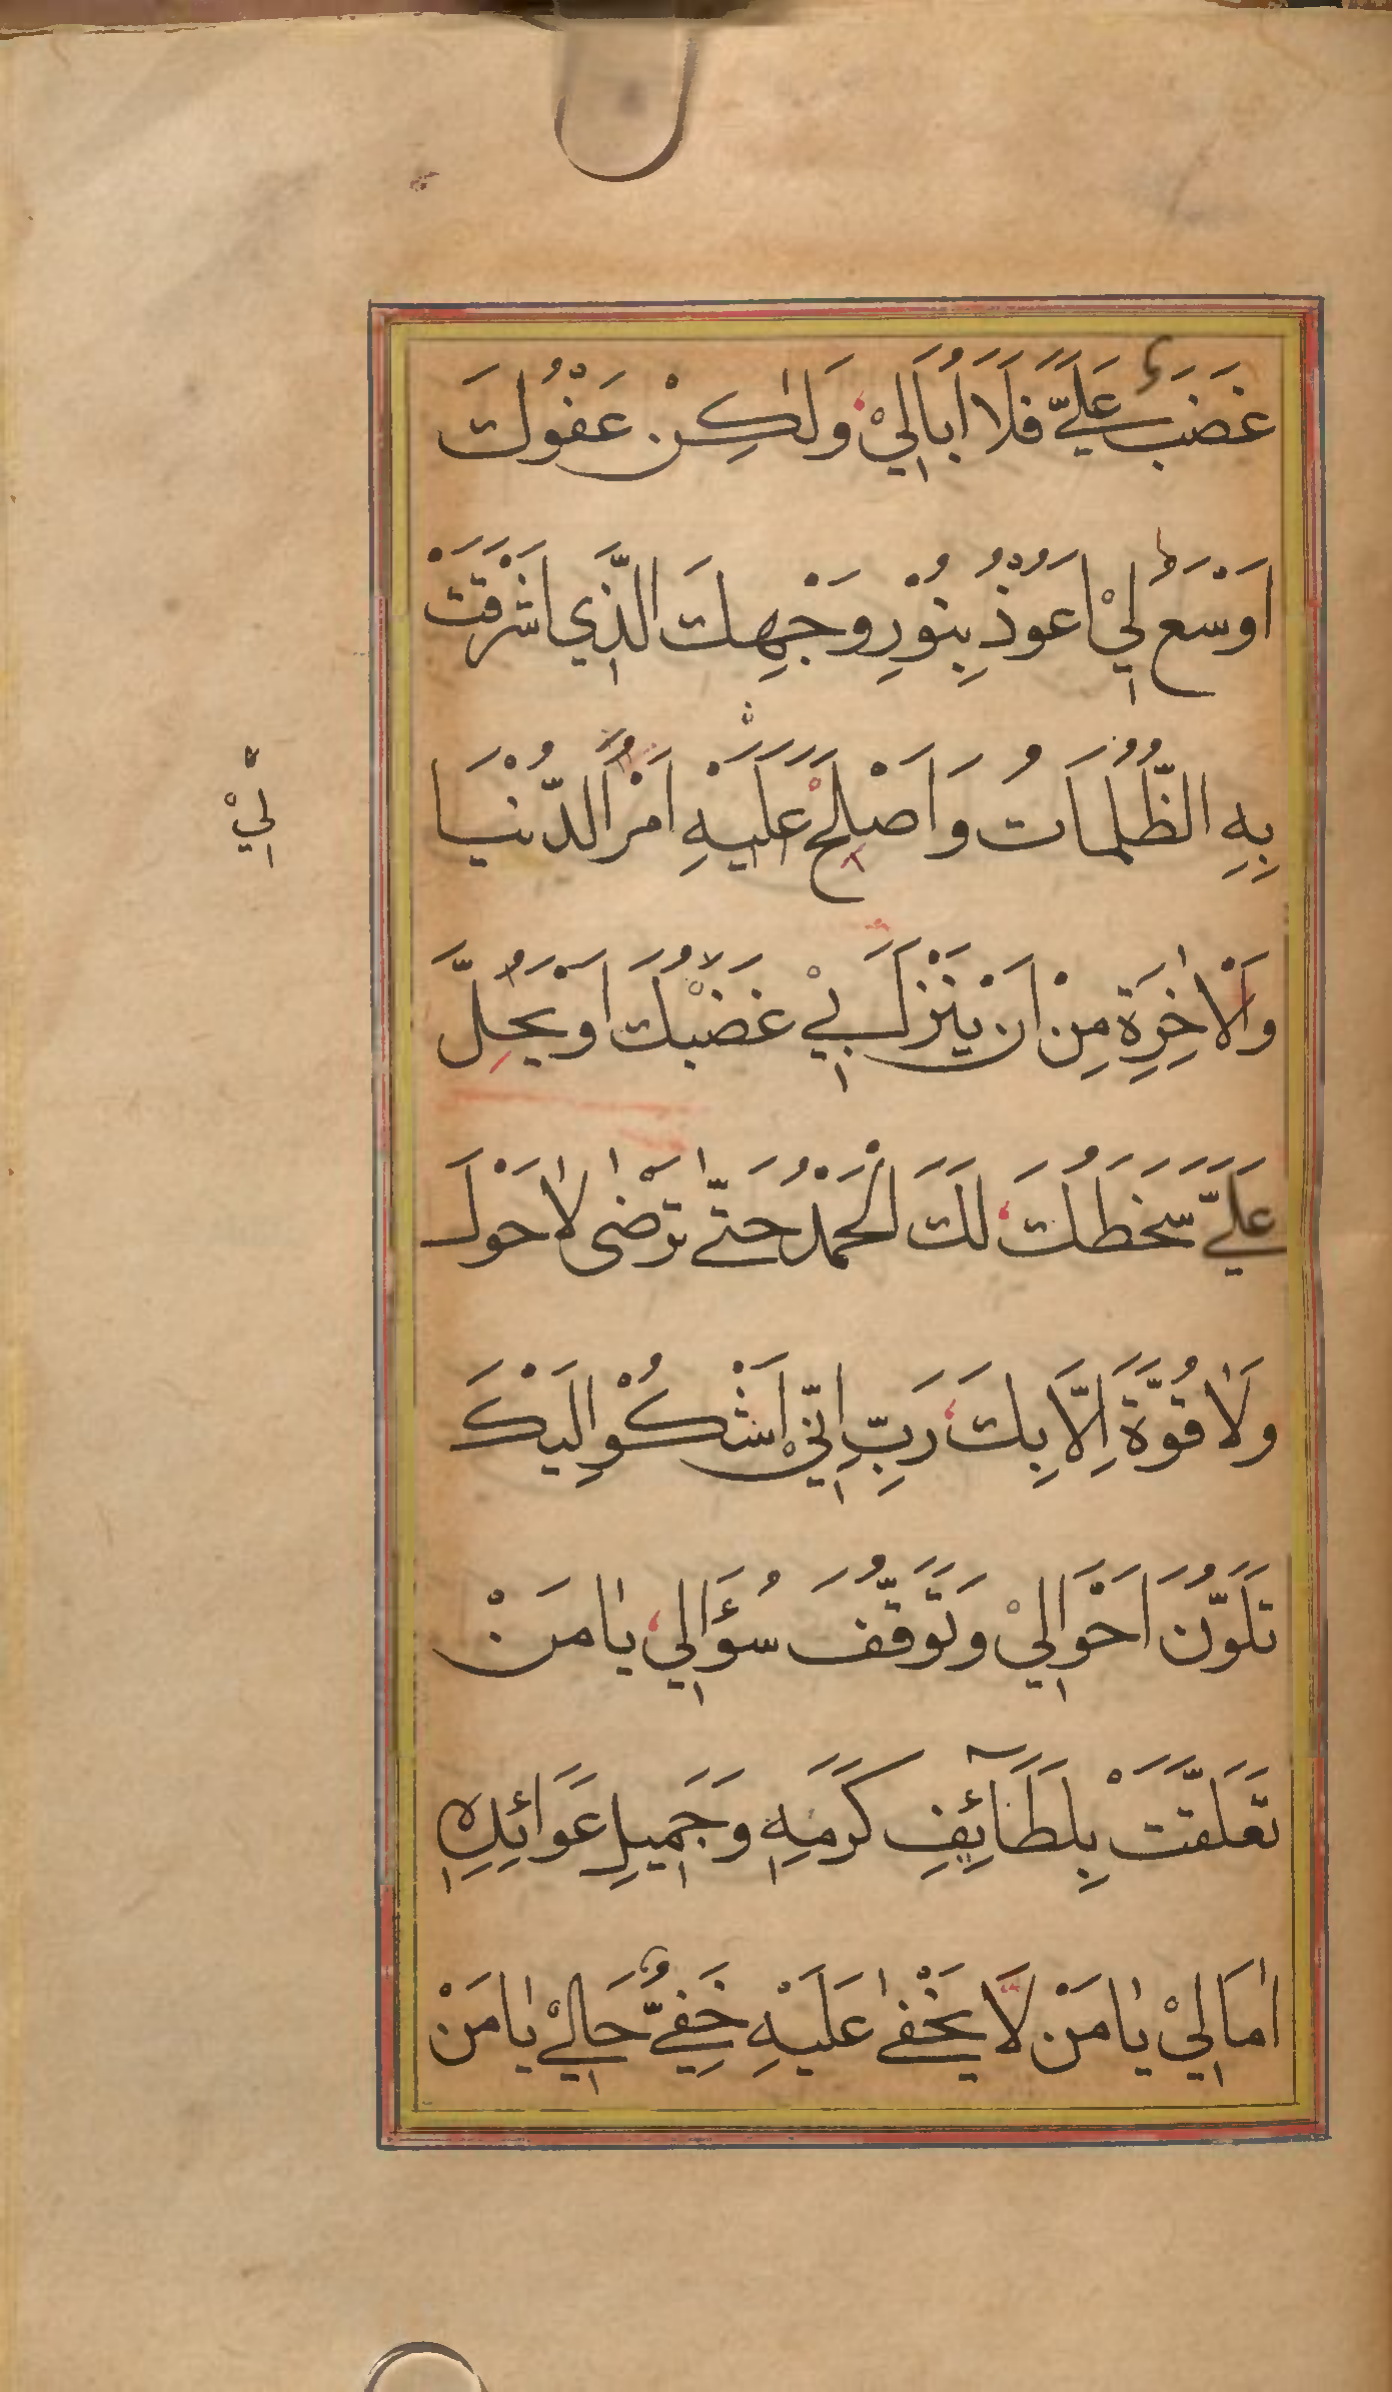 غَضَبٌ عَلَيَّ فَلَا اُبَالِيْ وَلٰكِنْ عَفْوُكَ
اَوْسَعُ لِيْ اَعُوْذُ بِنُوْرِ وَجْهِكَ الَّذِي اَشْرَقَتْ
بِهِ الظُّلُمَاتُ وَاَصْلِحْ عَلَيْهِ اَمْرُ الدُّنْيَا
لِيْ
وَالْاٰخِرَةِ مِنْ اَنْ يَنْزِلَ بِيْ غَضَبُكَ اَوْ يَحِلَّ
عَلَيَّ سَخَطُكَ لَكَ الْحَمْدُ حَتّٰى تَرْضٰى لَا حَوْلَ
وَلَا قُوَّةَ اِلَّا بِكَ رَبِّ اِنِّيْ اَشْكُوْ اِلَيْكَ
تَلَوُّنَ اَحْوَالِيْ وَتَوَقُّفَ سُؤَالِيْ يَا مَنْ
تَعَلَّقَتْ بِلَطَآئِفِ كَرَمِهِ وَجَمِيلِ عَوَائِدِهِ
اٰمَالِيْ يَا مَنْ لَا يَخْفٰى عَلَيْهِ خَفِيُّ حَالِيْ يَا مَنْ